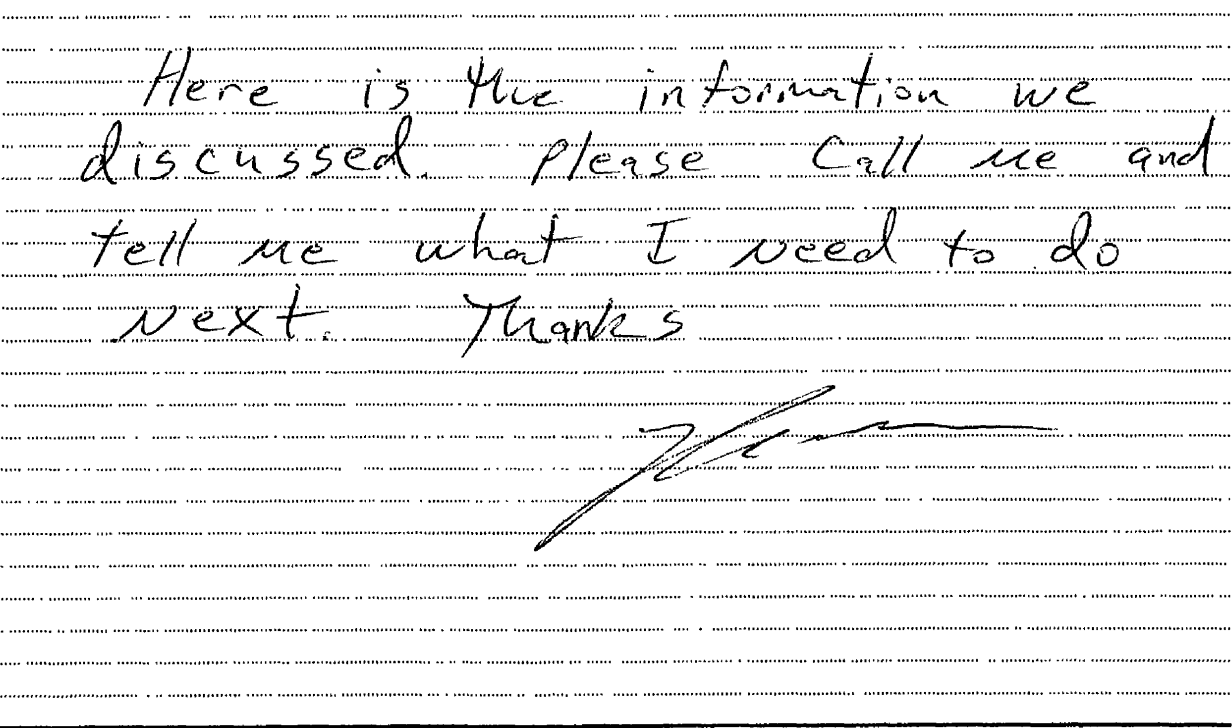 Here is the information we
discussed. Please Call me and
tell me what I need to do
Next. Thanks